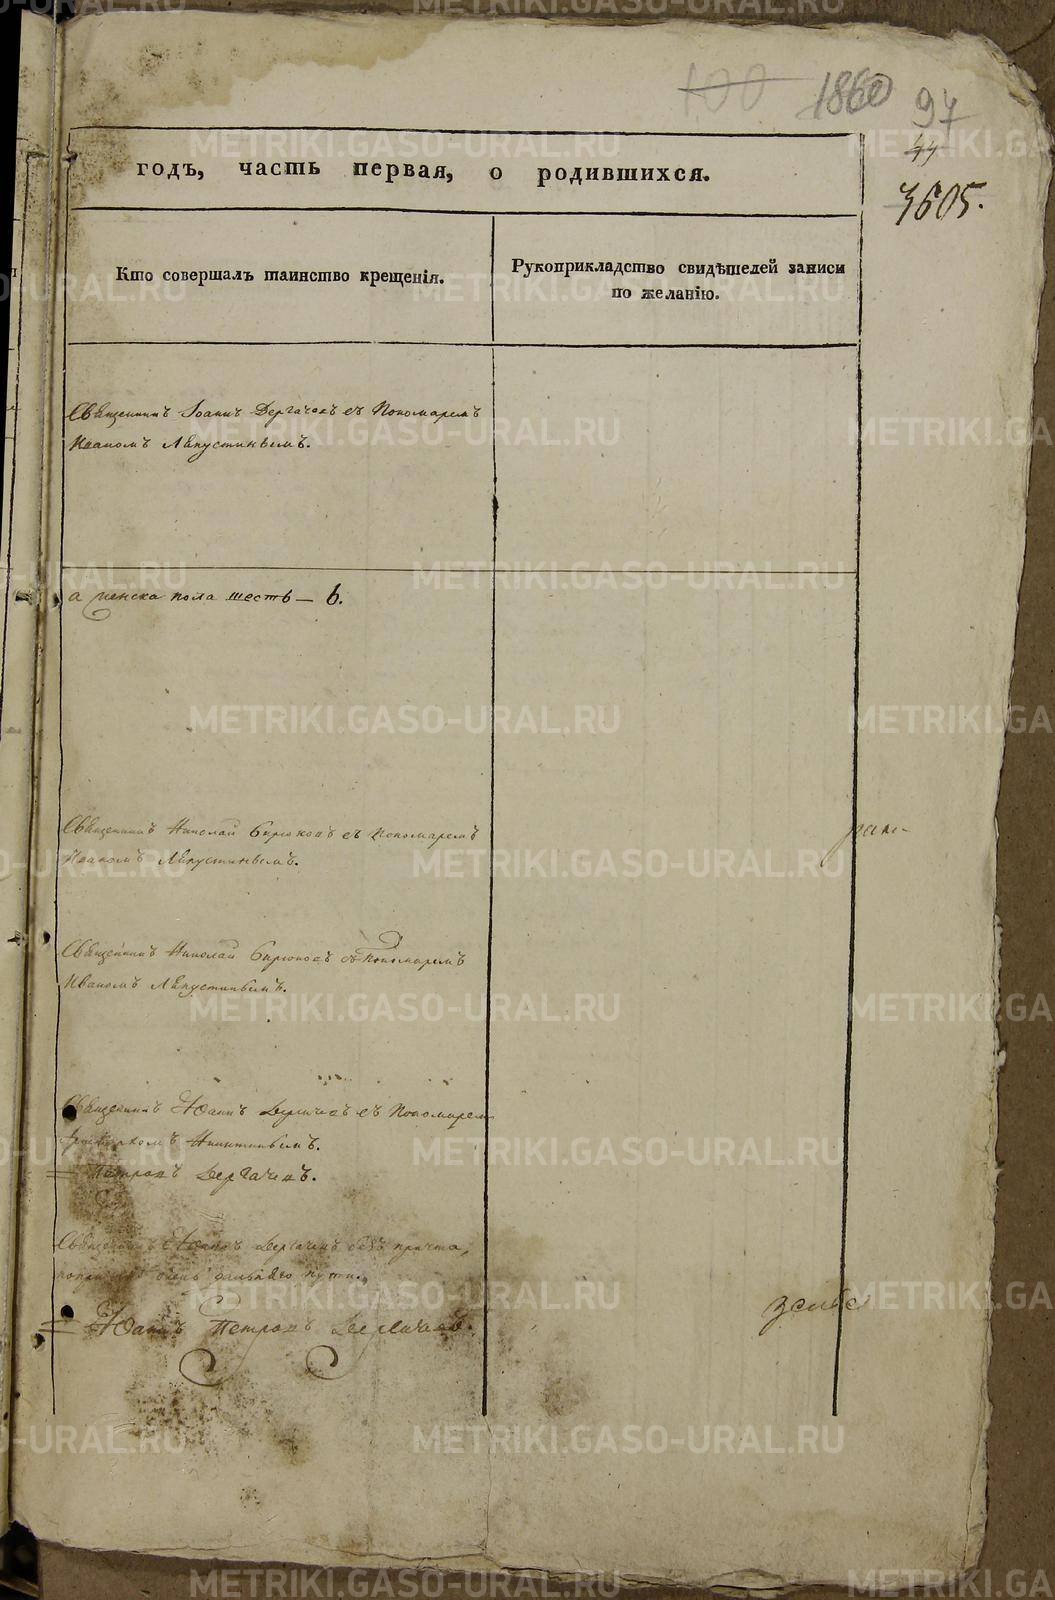 100 1860 97
44
3605.
годъ, часть первая, о родившихся.
Кто совершалъ таинство крещенія.
Рукоприкладство свидѣтелей записи
по желанію.
Священникъ Іоаннъ Дергачевъ съ Пономаремъ
Иваномъ Ляпустинымъ.
а женска пола шесть — 6.
Священникъ Николай Бирюковъ съ Пономаремъ
Иваномъ Ляпустинымъ.
Священникъ Николай Бирюковъ съ Пономаремъ
Иваномъ Ляпустинымъ.
Священникъ Іоаннъ Дергачевъ съ Пономаремъ
Никитинымъ.
= Петровъ Дергачевъ.
Священникъ Іоаннъ Дергачевъ безъ причта,
очень дальняго пути.
= Іоаннъ Петровъ Дергачевъ.
METRIKI.GASO-URAL.RU